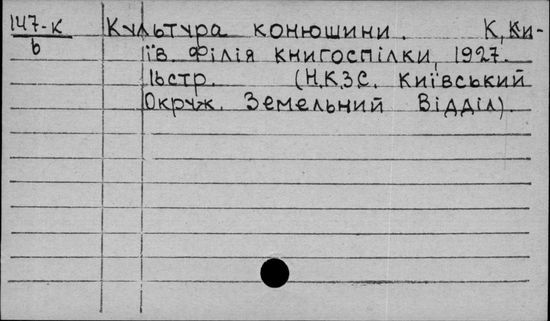 147-К Культура конюшини. К, Ки-
b їв. Філія книгоспілки, 1927.
16стр. (Н.К.З.С. Київський
Окруж. Земельний Відділ).